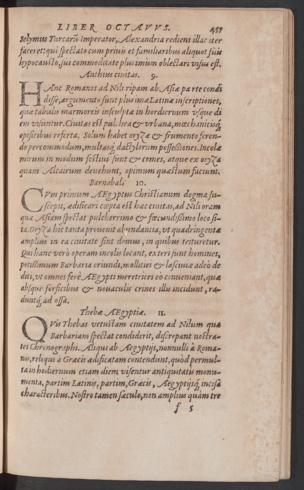 LIBER OCTAVVS. 457
Selymus Turcarũ Imperator, Alexandria rediens illac iter
faceret: qui spectato cum primis et familiaribus aliquot suis
hypocausto, sua commoditate plurimum oblectari visus est.
Anthius ciuitas. 9.
HAnc Romanos ad Nili ripam ab Asiæ parte condi
disse, argumento sunt plurima Latina inscriptiones,
quæ tabulis marmoreis insculpta in hodiernum vsque di
em visuntur. Ciuitas est pulchra & vrbana, multis hincinq́;
opificibus referta. Solum habet oryza & frumento feren-
do percommodum, multasq́; dactylorum possessiones. Incolæ
mirum in modum festiui sunt & comes, atque ex oryza
quam Alcairum deuehunt, opimum quæstum faciunt.
Barnabal. 10.
CVm primum Ægyptus Christianum dogma su-
scepit, ædificari cœpta est hæc ciuitas, ad Nili oram
qua Asiam spectat pulcherrimo & fœcundissimo loco si-
ta. Oryza hic tanta prouenit abundantia, vt quadringenta
amplius in ea ciuitate sint domus, in quibus teritur.
Qui hanc verò operam incolis locant, exteri sunt homines,
potissimum Barbaria eriundi, mollities & lasciuia adeò de
diti, vt omnes ferè Ægypti meretrices eò conueniant, quæ
absque forficibus & nouaculis crines illis incidunt, ra-
duntq́; ad ossa.
Thebæ Ægyptiæ. 11.
QVis Thebas vetustam ciuitatem ad Nilum qua
Barbariam spectat condiderit, discrepant nostra-
tes Chronographi. Aliqui ab Ægyptijs, nonnulli à Roma-
nis, reliqui à Græcis ædificatam contendunt, quòd permul-
ta in hodiernum etiam diem visentur antiquitatis monu-
menta, partim Latinis, partim, Græcis, Ægyptijsq́; incisa
characteribus. Nostro tamen sæculo, non amplius quàm tre
f 5